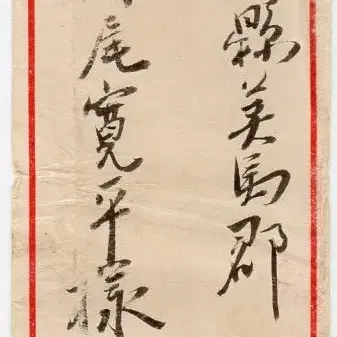 縣美馬郡
尾寛平様